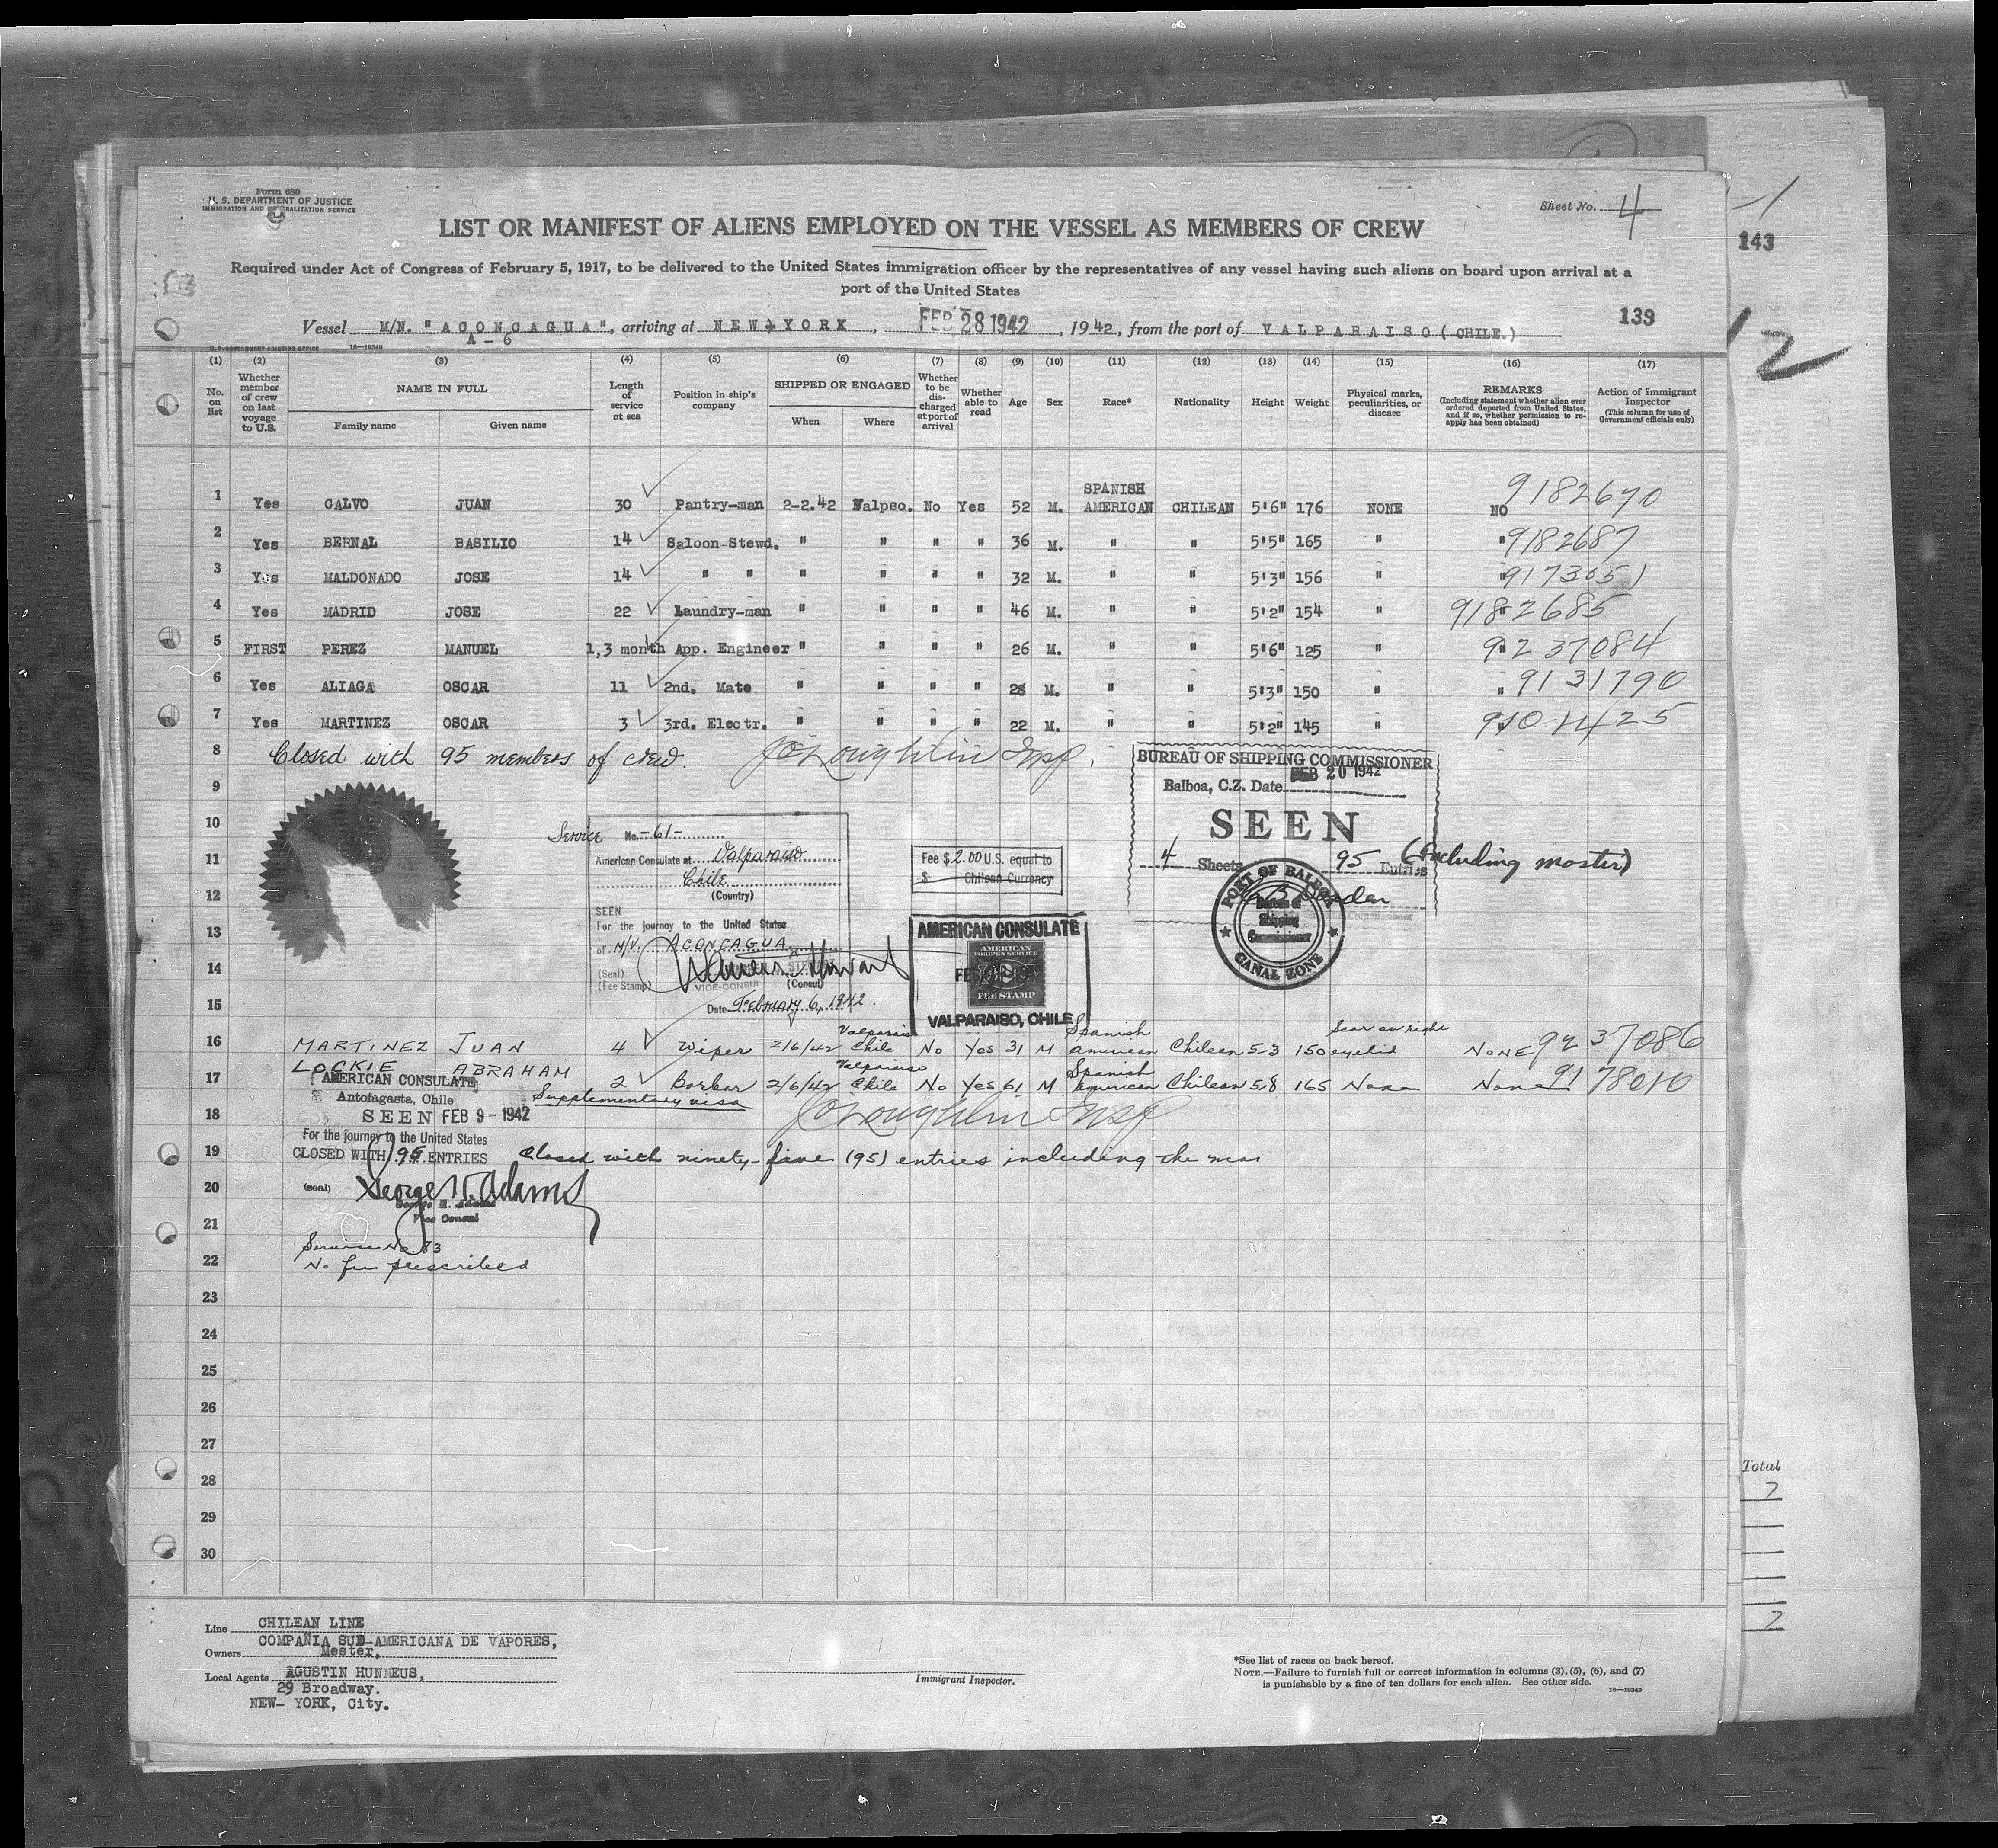 Form 680
U. S. DEPARTMENT OF JUSTICE
IMMIGRATION AND NATURALIZATION SERVICE
Sheet No. 4
LIST OR MANIFEST OF ALIENS EMPLOYED ON THE VESSEL AS MEMBERS OF CREW
143
Required under Act of Congress of February 5, 1917, to be delivered to the United States immigration officer by the representatives of any vessel having such aliens on board upon arrival at a
port of the United States
139
Vessel M/N. "ACONCAGUA", arriving at NEW YORK, FEB 28 1942, 1942, from the port of VALPARAISO (CHILE.)
A-6
12
(1) (2) (3) (4) (5) (6) (7) (8) (9) (10) (11) (12) (13) (14) (15) (16) (17)
No. on list
Whether member of crew on last voyage to U.S.
NAME IN FULL
Family name
Given name
Length of service at sea
Position in ship's company
SHIPPED OR ENGAGED
When
Where
Whether to be discharged at port of arrival
Whether able to read
Age
Sex
Race*
Nationality
Height
Weight
Physical marks, peculiarities, or disease
REMARKS
(Including statement whether alien ever ordered deported from United States, and if so, whether permission to reapply has been obtained)
Action of Immigrant Inspector
(This column for use of Government officials only)
1 Yes CALVO JUAN 30 Pantry-man 2-2.42 Valpso. No Yes 52 M. SPANISH AMERICAN CHILEAN 5'6" 176 NONE NO 9182670
2 Yes BERNAL BASILIO 14 Saloon-Stewd. " " " " 36 M. " " 5'5" 165 " " 9182687
3 Yes MALDONADO JOSE 14 " " " " " " 32 M. " " 5'3" 156 " " 9173051
4 Yes MADRID JOSE 22 Laundry-man " " " " 46 M. " " 5'2" 154 " " 9182685
5 FIRST PEREZ MANUEL 1,3 month App. Engineer " " " " 26 M. " " 5'6" 125 " " 9237084
6 Yes ALIAGA OSCAR 11 2nd. Mate " " " " 28 M. " " 5'3" 150 " " 9131790
7 Yes MARTINEZ OSCAR 3 3rd. Electr. " " " " 22 M. " " 5'2" 145 "
8 Closed with 95 members of crew. J O'Loughlin Insp.
BUREAU OF SHIPPING COMMISSIONER
Balboa, C.Z. Date FEB 20 1942
SEEN
4 Sheets 95 Entries (Including master)
Commissioner
PORT OF BALBOA
Bureau of
Shipping
Commissioner
CANAL ZONE
9
10
11
12
13
14
15
Service No. -61-
American Consulate at Valparaiso
Chile
(Country)
SEEN
For the journey to the United States
of M/V. ACONCAGUA
(Seal)
(Fee Stamp)
VICE-CONSUL
(Consul)
Date February 6, 1942.
Fee $2.00 U.S. equal to
$ Chilean Currency
AMERICAN CONSULATE
AMERICAN
FOREIGN SERVICE
FEE STAMP
VALPARAISO, CHILE
16 MARTINEZ JUAN 4 Wiper 2/6/42 Valparaiso Chile No Yes 31 M Spanish American Chilean 5-3 150 Scar on right eyelid NONE 9237086
17 LOCKIE ABRAHAM 2 Barber 2/6/42 Valparaiso Chile No Yes 61 M Spanish American Chilean 5-8 165 None None 9178010
AMERICAN CONSULATE
Antofagasta, Chile
Supplementary visa
18 SEEN FEB 9 - 1942
J O'Loughlin Insp
For the journey to the United States
19 CLOSED WITH 95 ENTRIES Closed with ninety-five (95) entries including the mas
20 (seal) George H. Adams
George H. Adams
Vice Consul
21
Service No. 83
22 No fee prescribed
23
24
25
26
27
28
29
30
Total
7
7
Line CHILEAN LINE
COMPAÑIA SUD-AMERICANA DE VAPORES,
Owners Mester,
Local Agents AGUSTIN HUNNEUS,
29 Broadway.
NEW- YORK, City.
Immigrant Inspector.
*See list of races on back hereof.
NOTE.—Failure to furnish full or correct information in columns (3), (5), (6), and (7)
is punishable by a fine of ten dollars for each alien. See other side.
16—19349